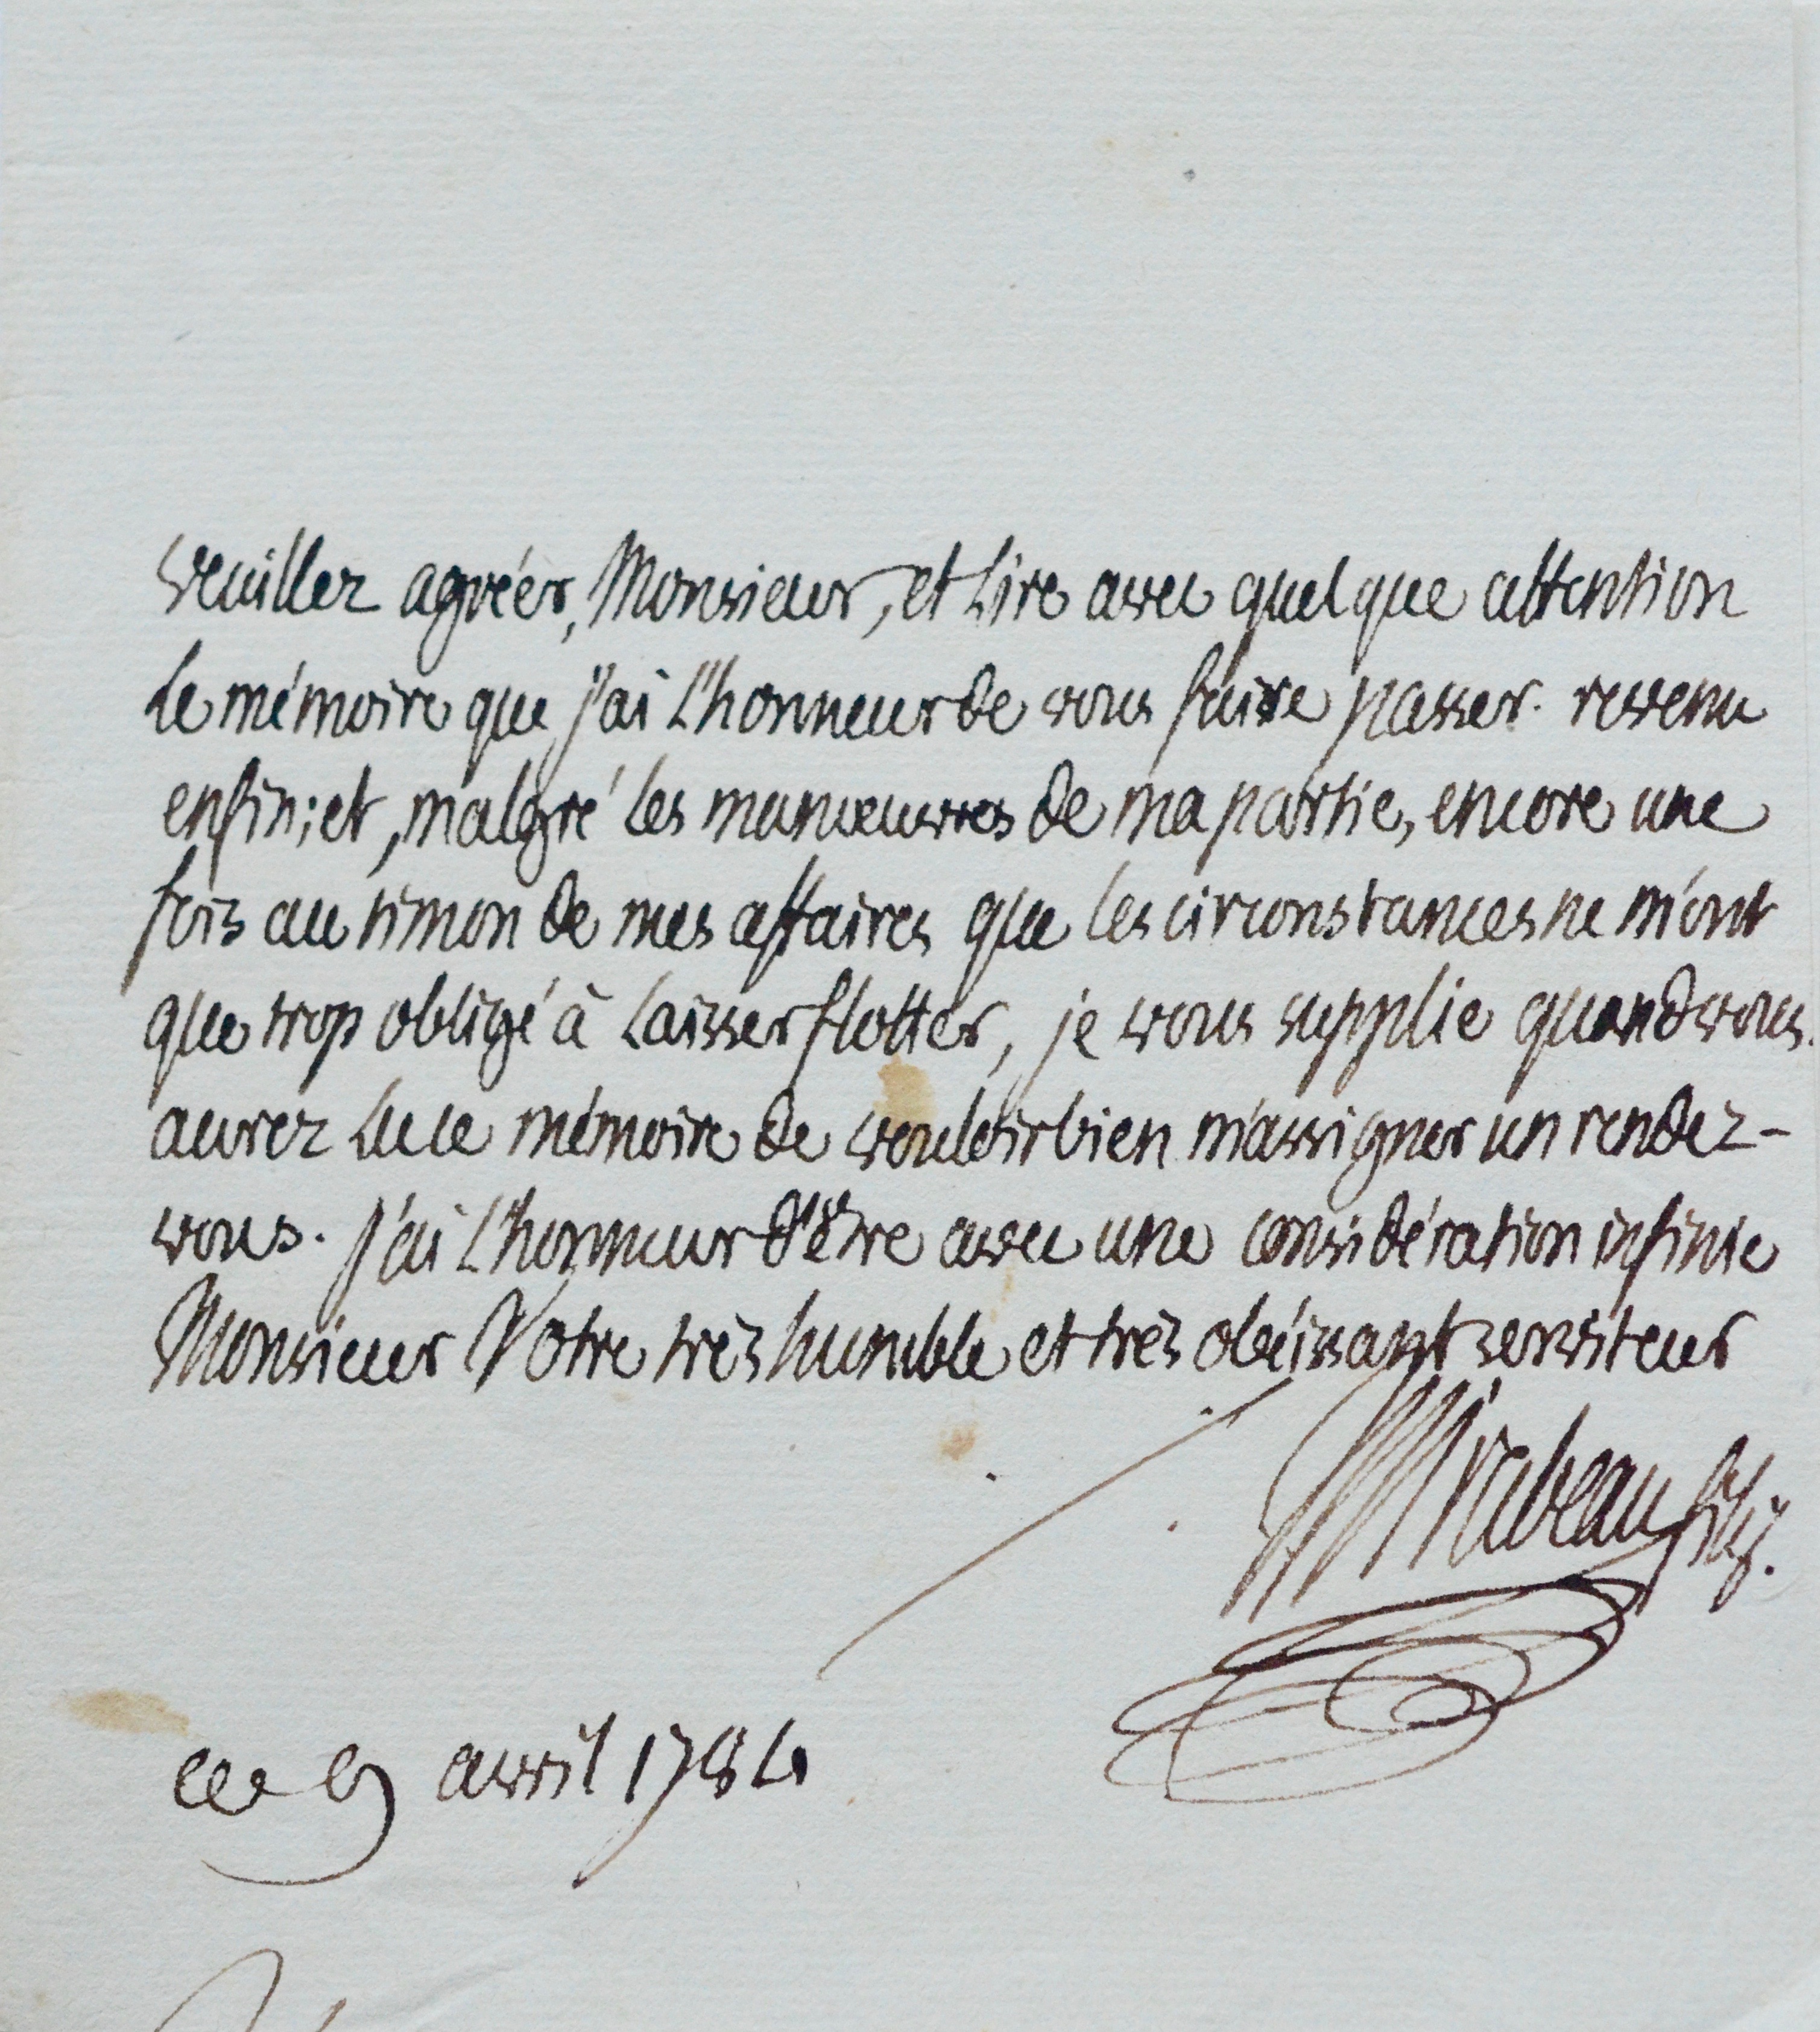 veuillez agréer, Monsieur, et lire avec quelque attention
le mémoire que j'ai l'honneur de vous faire passer. revenu
enfin; et, malgré les manœuvres de ma partie, encore une
fois au timon de mes affaires que les circonstances ne m'ont
que trop obligé à laisser flotter, je vous supplie quand vous
aurez lu ce mémoire de vouloir bien m'assigner un rendez-
vous. j'ai l'honneur d'être avec une considération infinie
Monsieur Votre très humble et très obéissant serviteur
Mirabeau fils.
ce 9 avril 1784